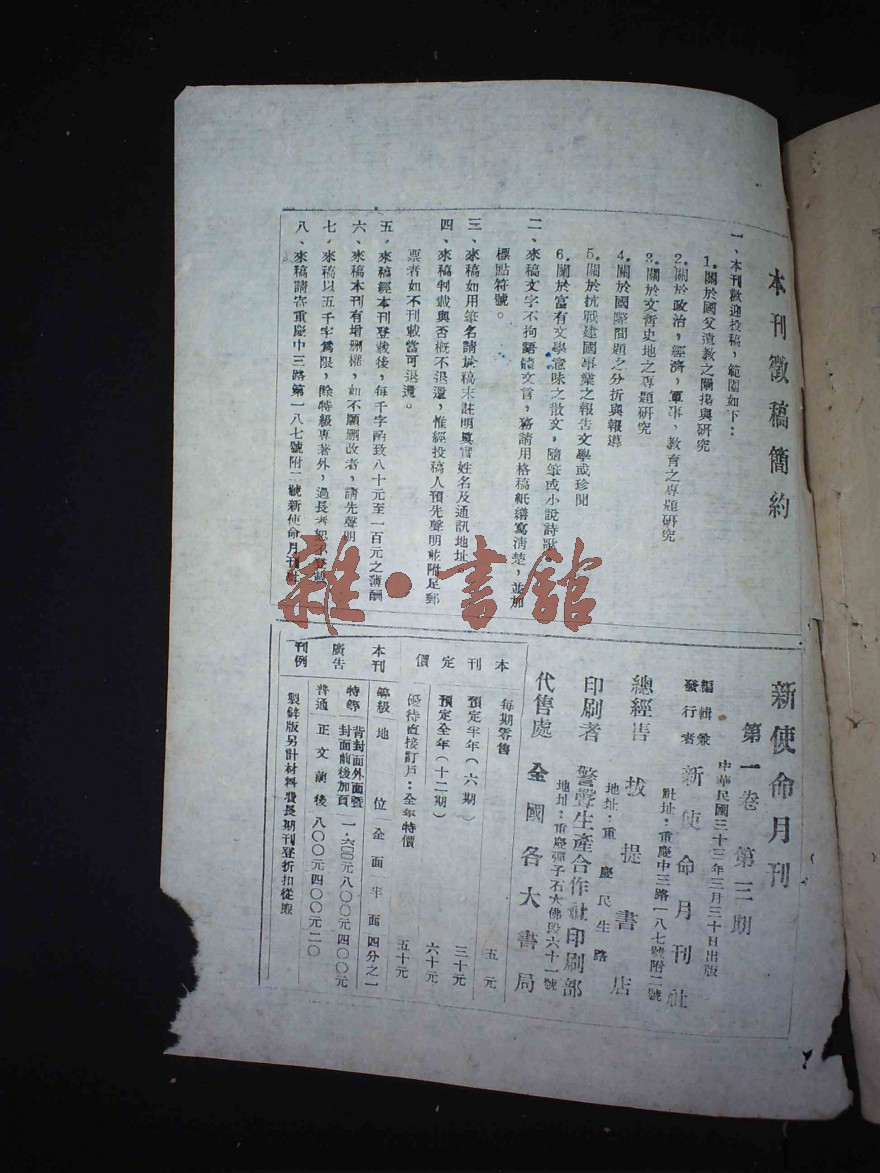 本刊徵稿簡約
一、本刊歡迎投稿，範圍如下：
1.關於國父遺教之闡揚與研究
2.關於政治，經濟，軍事、教育之專題研究
3.關於文哲史地之專題研究
4.關於國際問題之分折與報導
5.關於抗戰建國事業之報告文學或珍聞
6.關於富有文學意味之散文，隨筆或小說詩歌。
二、來稿文字不拘語體文言，務請用格稿紙繕寫清楚，並加
標點符號。
三、來稿如用筆名請於稿末註明眞實姓名及通訊地址
四、來稿刋載與否概不退還，惟經投稿人預先聲明並附足郵
票者如不刊載當可退還。
五，來稿經本刊登載後，每千字酌致八十元至一百元之薄酬
六、來稿本刊有增删權，如不願删改者，請先聲明
七、來稿以五千字爲限，除特級專著外，過長者恕不登載
八、來稿請寄重慶中三路第一八七號附二號新使命月刊社
新使命月刊
第一卷 第三期
中華民國三十三年三月三十日出版
編輯兼
發行者 新使命月刊社
社址：重慶中三路一八七號附二號
總經售 拔提書店
地址：重慶民生路
印刷者 警聲生產合作社印刷部
地址：重慶彈子石大佛段六十一號
代售處 全國各大書局
本刊定價
每期零售 五元
預定半年（六期） 三十元
預定全年（十二期） 六十元
優待直接訂戶：全年特價 五十元
本刊廣告刊例
等級 地位 全面 半面 四分之一
特等 背封面外面暨封面前後加頁 一・六〇〇元 八〇〇元 四〇〇元
普通 正文前後 八〇〇元 四〇〇元 二〇
製鋅版另計材料費長期刊登折扣從廉
雜・書館